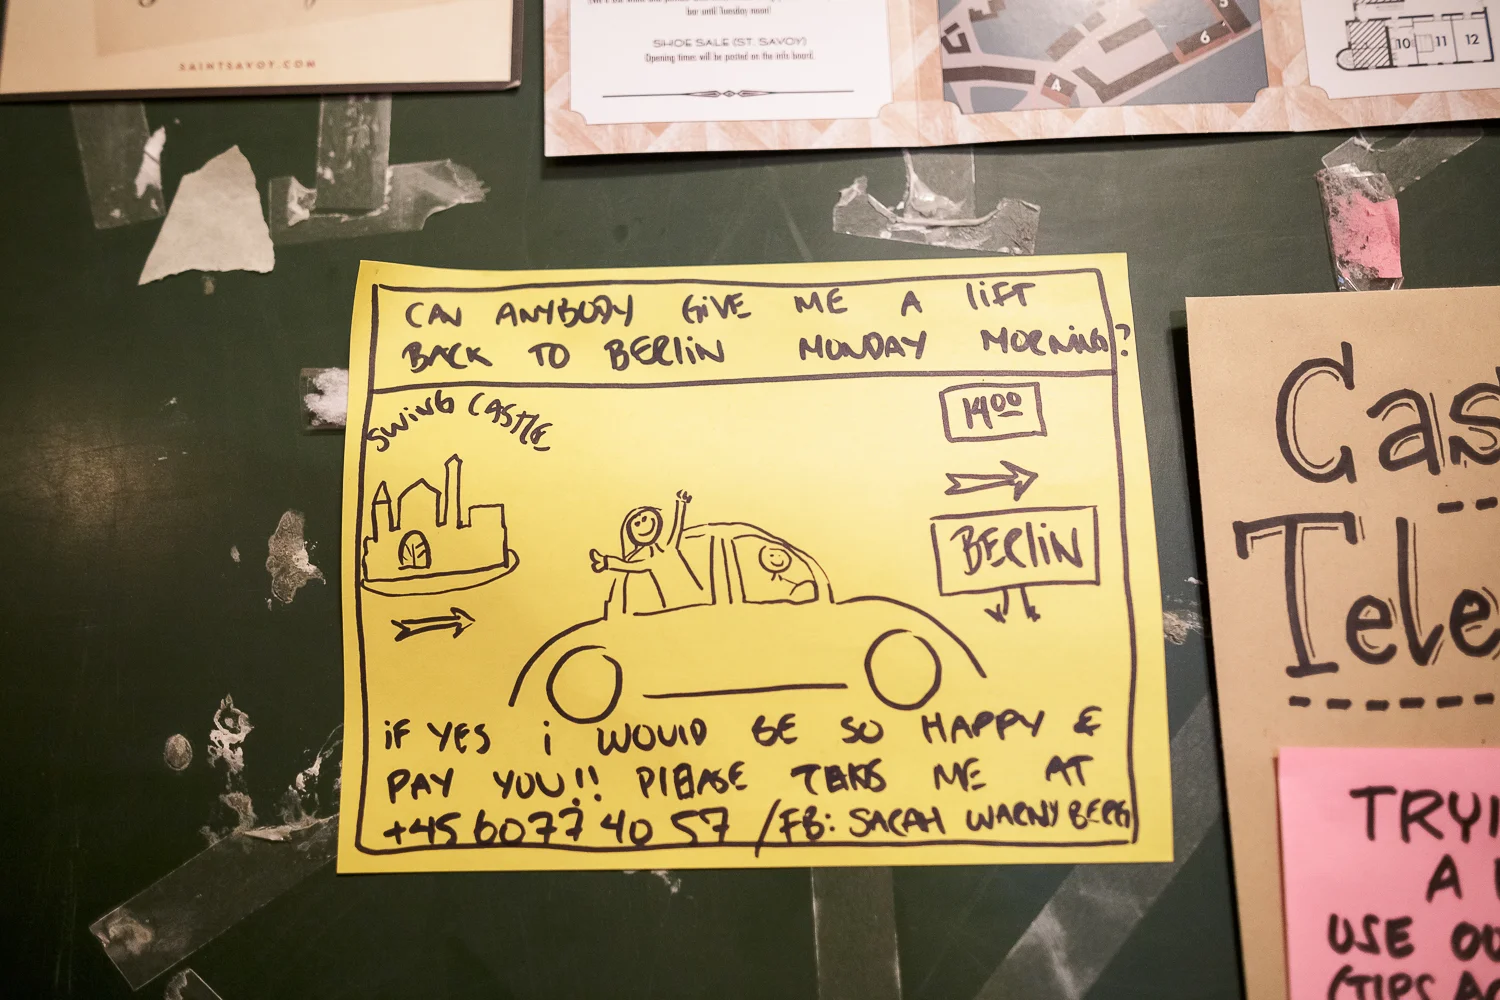 SAINTSAVOY.COM
bar until Tuesday noon!
SHOE SALE (ST. SAVOY)
Opening times will be posted on the info board.
4
5
6
10
11
12
CAN ANYBODY GIVE ME A LIFT
BACK TO BERLIN MONDAY MORNING?
SWING CASTLE
1400
BERLIN
IF YES I WOULD BE SO HAPPY &
PAY YOU!! PLEASE ME AT
+45 60 77 40 57 / FB: SARAH WARNYBERG
Cas
Tele
TRYI
A
USE OU
(TIPS